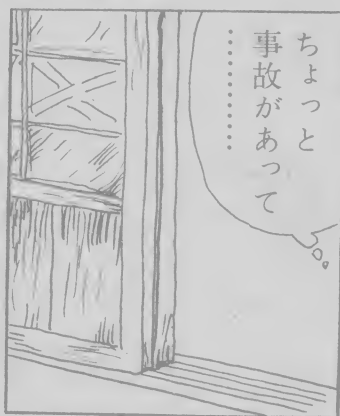 ちょっと
事故があって
………